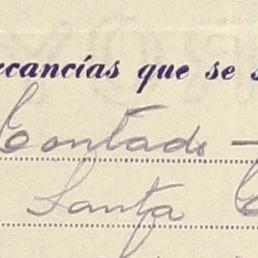 rcancías que se s
Contado -
Santa C